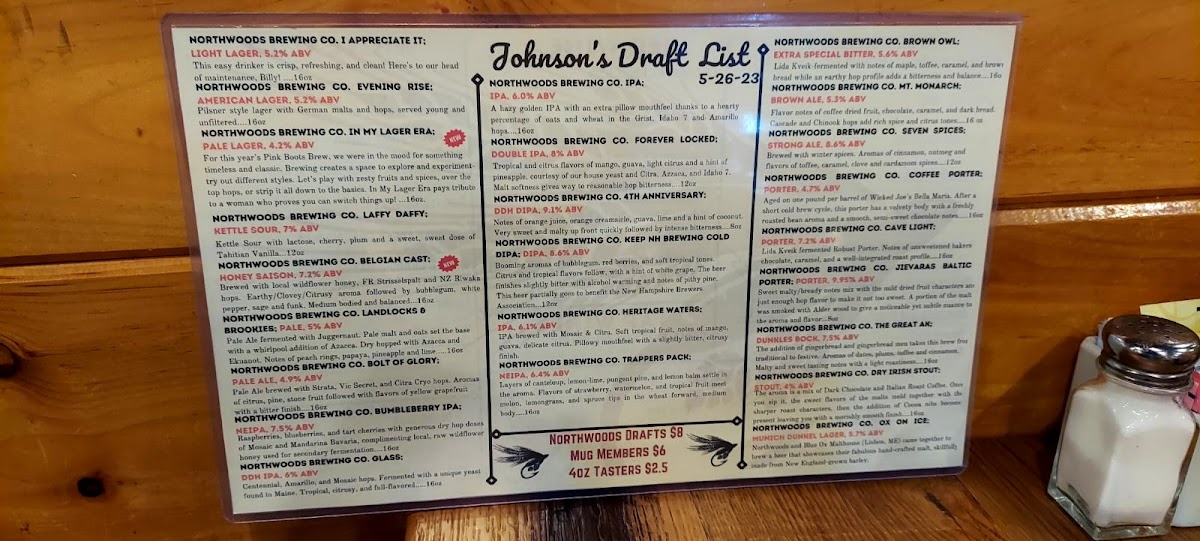 NORTHWOODS BREWING CO. I APPRECIATE IT;
LIGHT LAGER, 5.2% ABV
This easy drinker is crisp, refreshing, and clean! Here's to our head
of maintenance, Billy! ....16oz
NORTHWOODS BREWING CO. EVENING RISE;
AMERICAN LAGER, 5.2% ABV
Pilsner style lager with German malts and hops, served young and
unfiltered....16oz
NORTHWOODS BREWING CO. IN MY LAGER ERA;
NEW
PALE LAGER, 4.2% ABV
For this year's Pink Boots Brew, we were in the mood for something
timeless and classic. Brewing creates a space to explore and experiment-
try out different styles. Let's play with zesty fruits and spices, over the
top hops, or strip it all down to the basics. In My Lager Era pays tribute
to a woman who proves you can switch things up! ...16oz.
NORTHWOODS BREWING CO. LAFFY DAFFY;
KETTLE SOUR, 7% ABV
Kettle Sour with lactose, cherry, plum and a sweet, sweet dose of
Tahitian Vanilla....12oz
NORTHWOODS BREWING CO. BELGIAN CAST;
NEW
HONEY SAISON, 7.2% ABV
Brewed with local wildflower honey, FR Strisselspalt and NZ Riwaka
hops. Earthy/Clovey/Citrusy aroma followed by bubblegum, white
pepper, sage and funk. Medium bodied and balanced....16oz
NORTHWOODS BREWING CO. LANDLOCKS &
BROOKIES; PALE, 5% ABV
Pale Ale fermented with Juggernaut. Pale malt and oats set the base
with a whirlpool addition of Azacca. Dry hopped with Azacca and
Ekuanot. Notes of peach rings, papaya, pineapple and lime. ....16oz
NORTHWOODS BREWING CO. BOLT OF GLORY;
PALE ALE, 4.9% ABV
Pale Ale brewed with Strata, Vic Secret, and Citra Cryo hops. Aromas
of citrus, pine, stone fruit followed with flavors of yellow grapefruit
with a bitter finish....16oz
NORTHWOODS BREWING CO. BUMBLEBERRY IPA;
NEIPA, 7.5% ABV
Raspberries, blueberries, and tart cherries with generous dry hop doses
of Mosaic and Mandarina Bavaria, complimenting local, raw wildflower
honey used for secondary fermentation....16oz
NORTHWOODS BREWING CO. GLASS;
DDH IPA, 6% ABV
Centennial, Amarillo, and Mosaic hops. Fermented with a unique yeast
found in Maine. Tropical, citrusy, and full-flavored.....16oz
Johnson's Draft List
5-26-23
NORTHWOODS BREWING CO. IPA;
IPA, 6.0% ABV
A hazy golden IPA with an extra pillow mouthfeel thanks to a hearty
percentage of oats and wheat in the Grist. Idaho 7 and Amarillo
hops....16oz
NORTHWOODS BREWING CO. FOREVER LOCKED;
DOUBLE IPA, 8% ABV
Tropical and citrus flavors of mango, guava, light citrus and a hint of
pineapple, courtesy of our house yeast and Citra, Azzaca, and Idaho 7.
Malt softness gives way to reasonable hop bitterness....12oz
NORTHWOODS BREWING CO. 4TH ANNIVERSARY;
DDH DIPA, 9.1% ABV
Notes of orange juice, orange creamsicle, guava, lime and a hint of coconut.
Very sweet and malty up front quickly followed by intense bitterness....8oz
NORTHWOODS BREWING CO. KEEP NH BREWING COLD
DIPA; DIPA, 8.6% ABV
Booming aromas of bubblegum, red berries, and soft tropical tones.
Citrus and tropical flavors follow, with a hint of white grape. The beer
finishes slightly bitter with alcohol warming and notes of pithy pine.
This beer partially goes to benefit the New Hampshire Brewers
Association....12oz
NORTHWOODS BREWING CO. HERITAGE WATERS;
IPA, 6.1% ABV
IPA brewed with Mosaic & Citra. Soft tropical fruit, notes of mango,
guava, delicate citrus. Pillowy mouthfeel with a slightly bitter, citrusy
finish.
NORTHWOODS BREWING CO. TRAPPERS PACK;
NEIPA, 6.4% ABV
Layers of canteloup, lemon-lime, pungent pine, and lemon balm settle in
the aroma. Flavors of strawberry, watermelon, and tropical fruit meet
melon, lemongrass, and spruce tips in the wheat forward, medium
body....16oz
NORTHWOODS DRAFTS $8
MUG MEMBERS $6
4OZ TASTERS $2.5
NORTHWOODS BREWING CO. BROWN OWL;
EXTRA SPECIAL BITTER, 5.6% ABV
Lida Kveik fermented with notes of maple, toffee, caramel, and brown
bread while an earthy hop profile adds a bitterness and balance....16o
NORTHWOODS BREWING CO. MT. MONARCH;
BROWN ALE, 5.3% ABV
Flavor notes of coffee dried fruit, chocolate, caramel, and dark bread.
Cascade and Chinook hops add rich spice and citrus tones....16 oz
NORTHWOODS BREWING CO. SEVEN SPICES;
STRONG ALE, 8.6% ABV
Brewed with winter spices. Aromas of cinnamon, nutmeg and
flavors of toffee, caramel, clove and cardamon spices....12oz
NORTHWOODS BREWING CO. COFFEE PORTER;
PORTER, 4.7% ABV
Aged on one pound per barrel of Wicked Joe's Bella Maria. After a
short cold brew cycle, this porter has a velvety body with a freshly
roasted bean aroma and a smooth, semi-sweet chocolate notes....16oz
NORTHWOODS BREWING CO. CAVE LIGHT;
PORTER, 7.2% ABV
Lida Kveik fermented Robust Porter. Notes of unsweetened bakers
chocolate, caramel, and a well-integrated roast profile....16oz
NORTHWOODS BREWING CO. JIEVARAS BALTIC
PORTER; PORTER, 9.95% ABV
Sweet malty/bready notes mix with the mild dried fruit characters and
just enough hop flavor to make it not too sweet. A portion of the malt
was smoked with Alder wood to give a noticeable yet subtle nuance to
the aroma and flavor...8oz
NORTHWOODS BREWING CO. THE GREAT AK;
DUNKLES BOCK, 7.5% ABV
The addition of gingerbread and gingerbread men takes this brew from
traditional to festive. Aromas of dates, plums, toffee and cinnamon.
Malty and sweet tasting notes with a light roastiness....16oz
NORTHWOODS BREWING CO. DRY IRISH STOUT;
STOUT, 4% ABV
The aroma is a mix of Dark Chocolate and Italian Roast Coffee. Once
you sip it, the sweet flavors of the malts meld together with the
sharper roast characters, then the addition of Cocoa nibs become
present leaving you with a moreishly smooth finish....16oz
NORTHWOODS BREWING CO. OX ON ICE;
MUNICH DUNKEL LAGER, 5.7% ABV
Northwoods and Blue Ox Malthouse (Lisbon, ME) came together to
brew a beer that showcases their fabulous hand-crafted malt, skillfully
made from New England-grown barley.